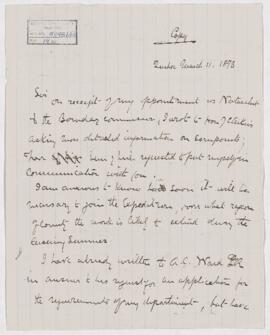 Copy
March 11, 1893
Sir
on receipt of my appointment as Naturalist
of the Boundary Commission, I wrote to
asking more detailed information on
been requested to put myself in
communication with you.
I am anxious to know how soon it will be
necessary to join the Expedition, over what region
of country the work is likely to extend during the
ensuing Summer
I have already written to A.G.
in answer to his request for an application for
the requirements of my department, but have